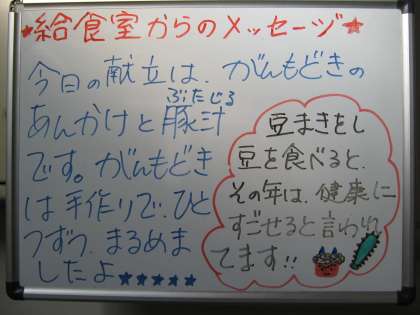 ★給食室からのメッセージ★
今日の献立は、がんもどきの
あんかけと豚汁
ぶたじる
です。がんもどき
は手作りで、ひと
つずつ、まるめま
したよ★★★★★
豆まきをし
豆を食べると、
その年は、健康に
すごせると言われ
てます!!